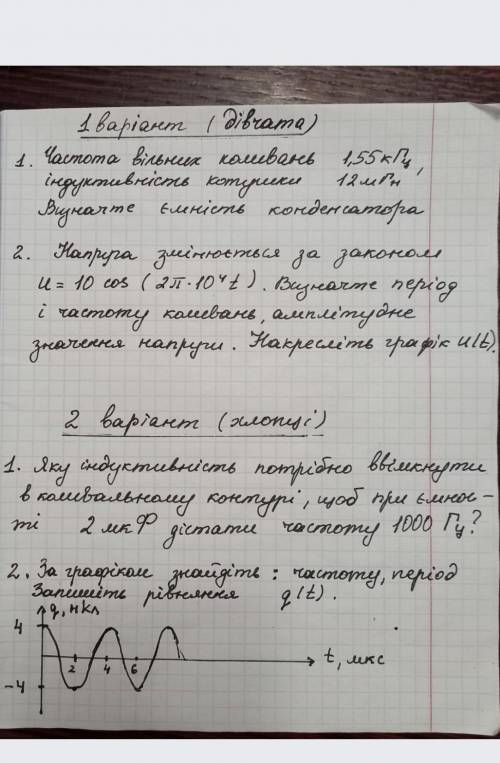 1 варіант (дівчата)
1. Частота вільних коливань 1,55 кГц,
індуктивність котушки 12 мГн
Визначте ємність конденсатора
2. Напруга змінюється за законом
u = 10 cos (2π·10⁴t). Визначте період
і частоту коливань, амплітудне
значення напруги. Накресліть графік u(t).
2 варіант (хлопці)
1. Яку індуктивність потрібно ввімкнути
в коливальному контурі, щоб при ємнос-
ті 2 мкФ дістати частоту 1000 Гц?
2. За графіком знайдіть: частоту, період
Запишіть рівняння q(t).
q, нКл
4
2 4 6
t, мкс
-4